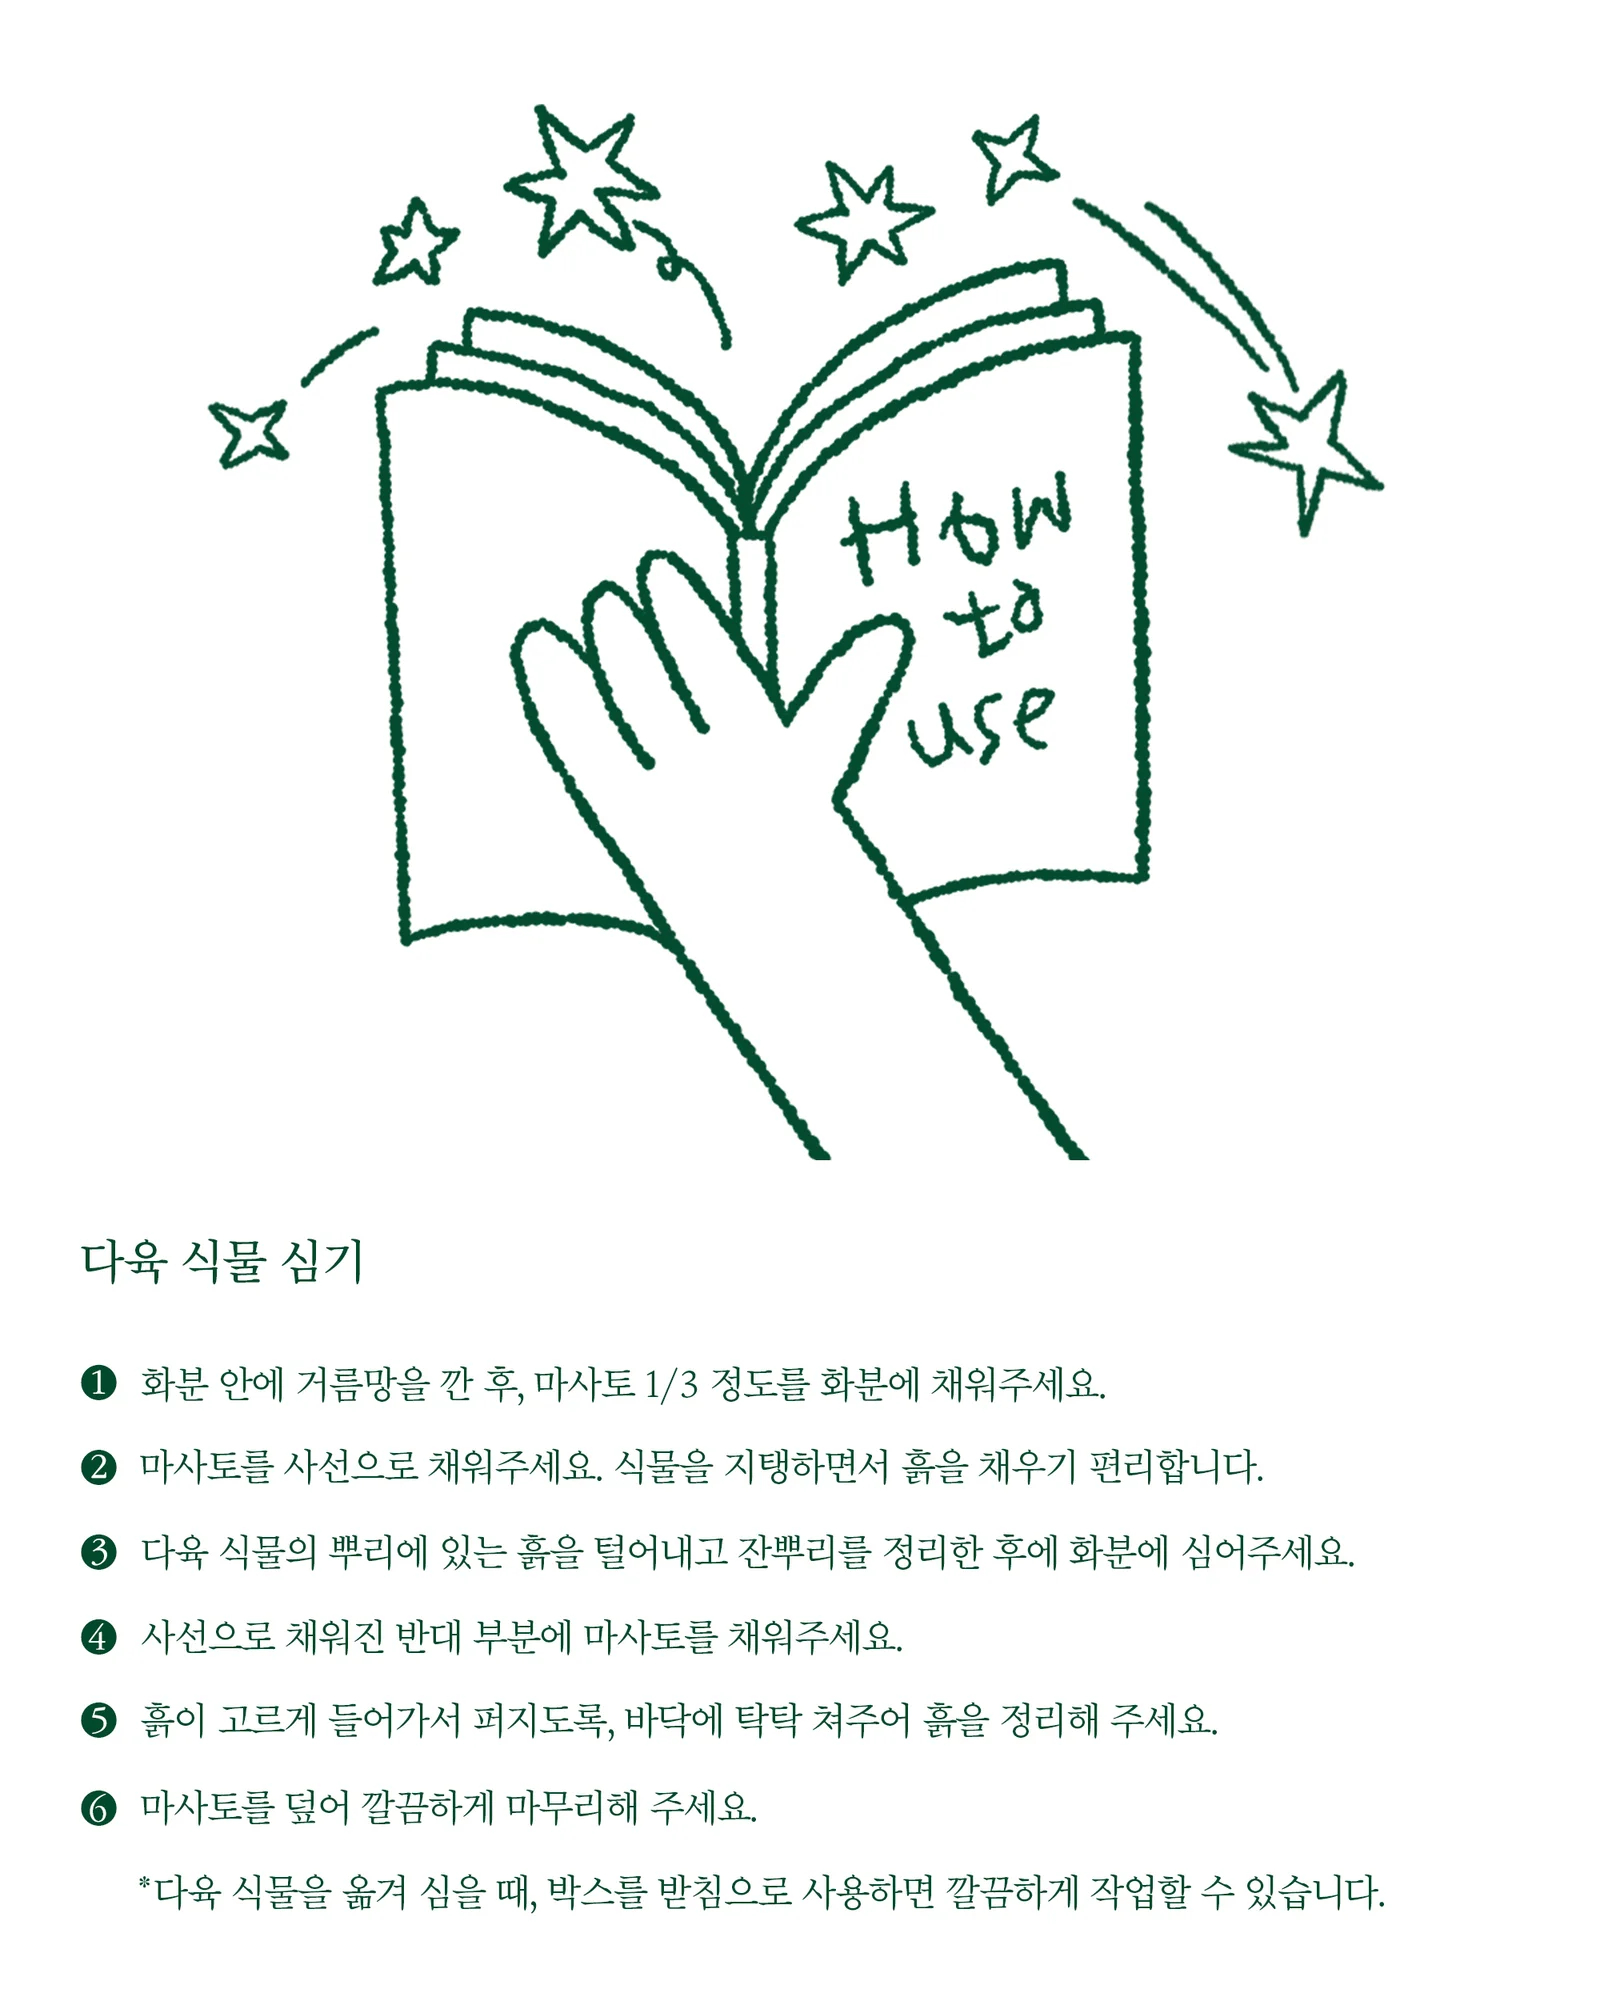 How
to
use
다육 식물 심기
❶ 화분 안에 거름망을 깐 후, 마사토 1/3 정도를 화분에 채워주세요.
❷ 마사토를 사선으로 채워주세요. 식물을 지탱하면서 흙을 채우기 편리합니다.
❸ 다육 식물의 뿌리에 있는 흙을 털어내고 잔뿌리를 정리한 후에 화분에 심어주세요.
❹ 사선으로 채워진 반대 부분에 마사토를 채워주세요.
❺ 흙이 고르게 들어가서 퍼지도록, 바닥에 탁탁 쳐주어 흙을 정리해 주세요.
❻ 마사토를 덮어 깔끔하게 마무리해 주세요.
*다육 식물을 옮겨 심을 때, 박스를 받침으로 사용하면 깔끔하게 작업할 수 있습니다.